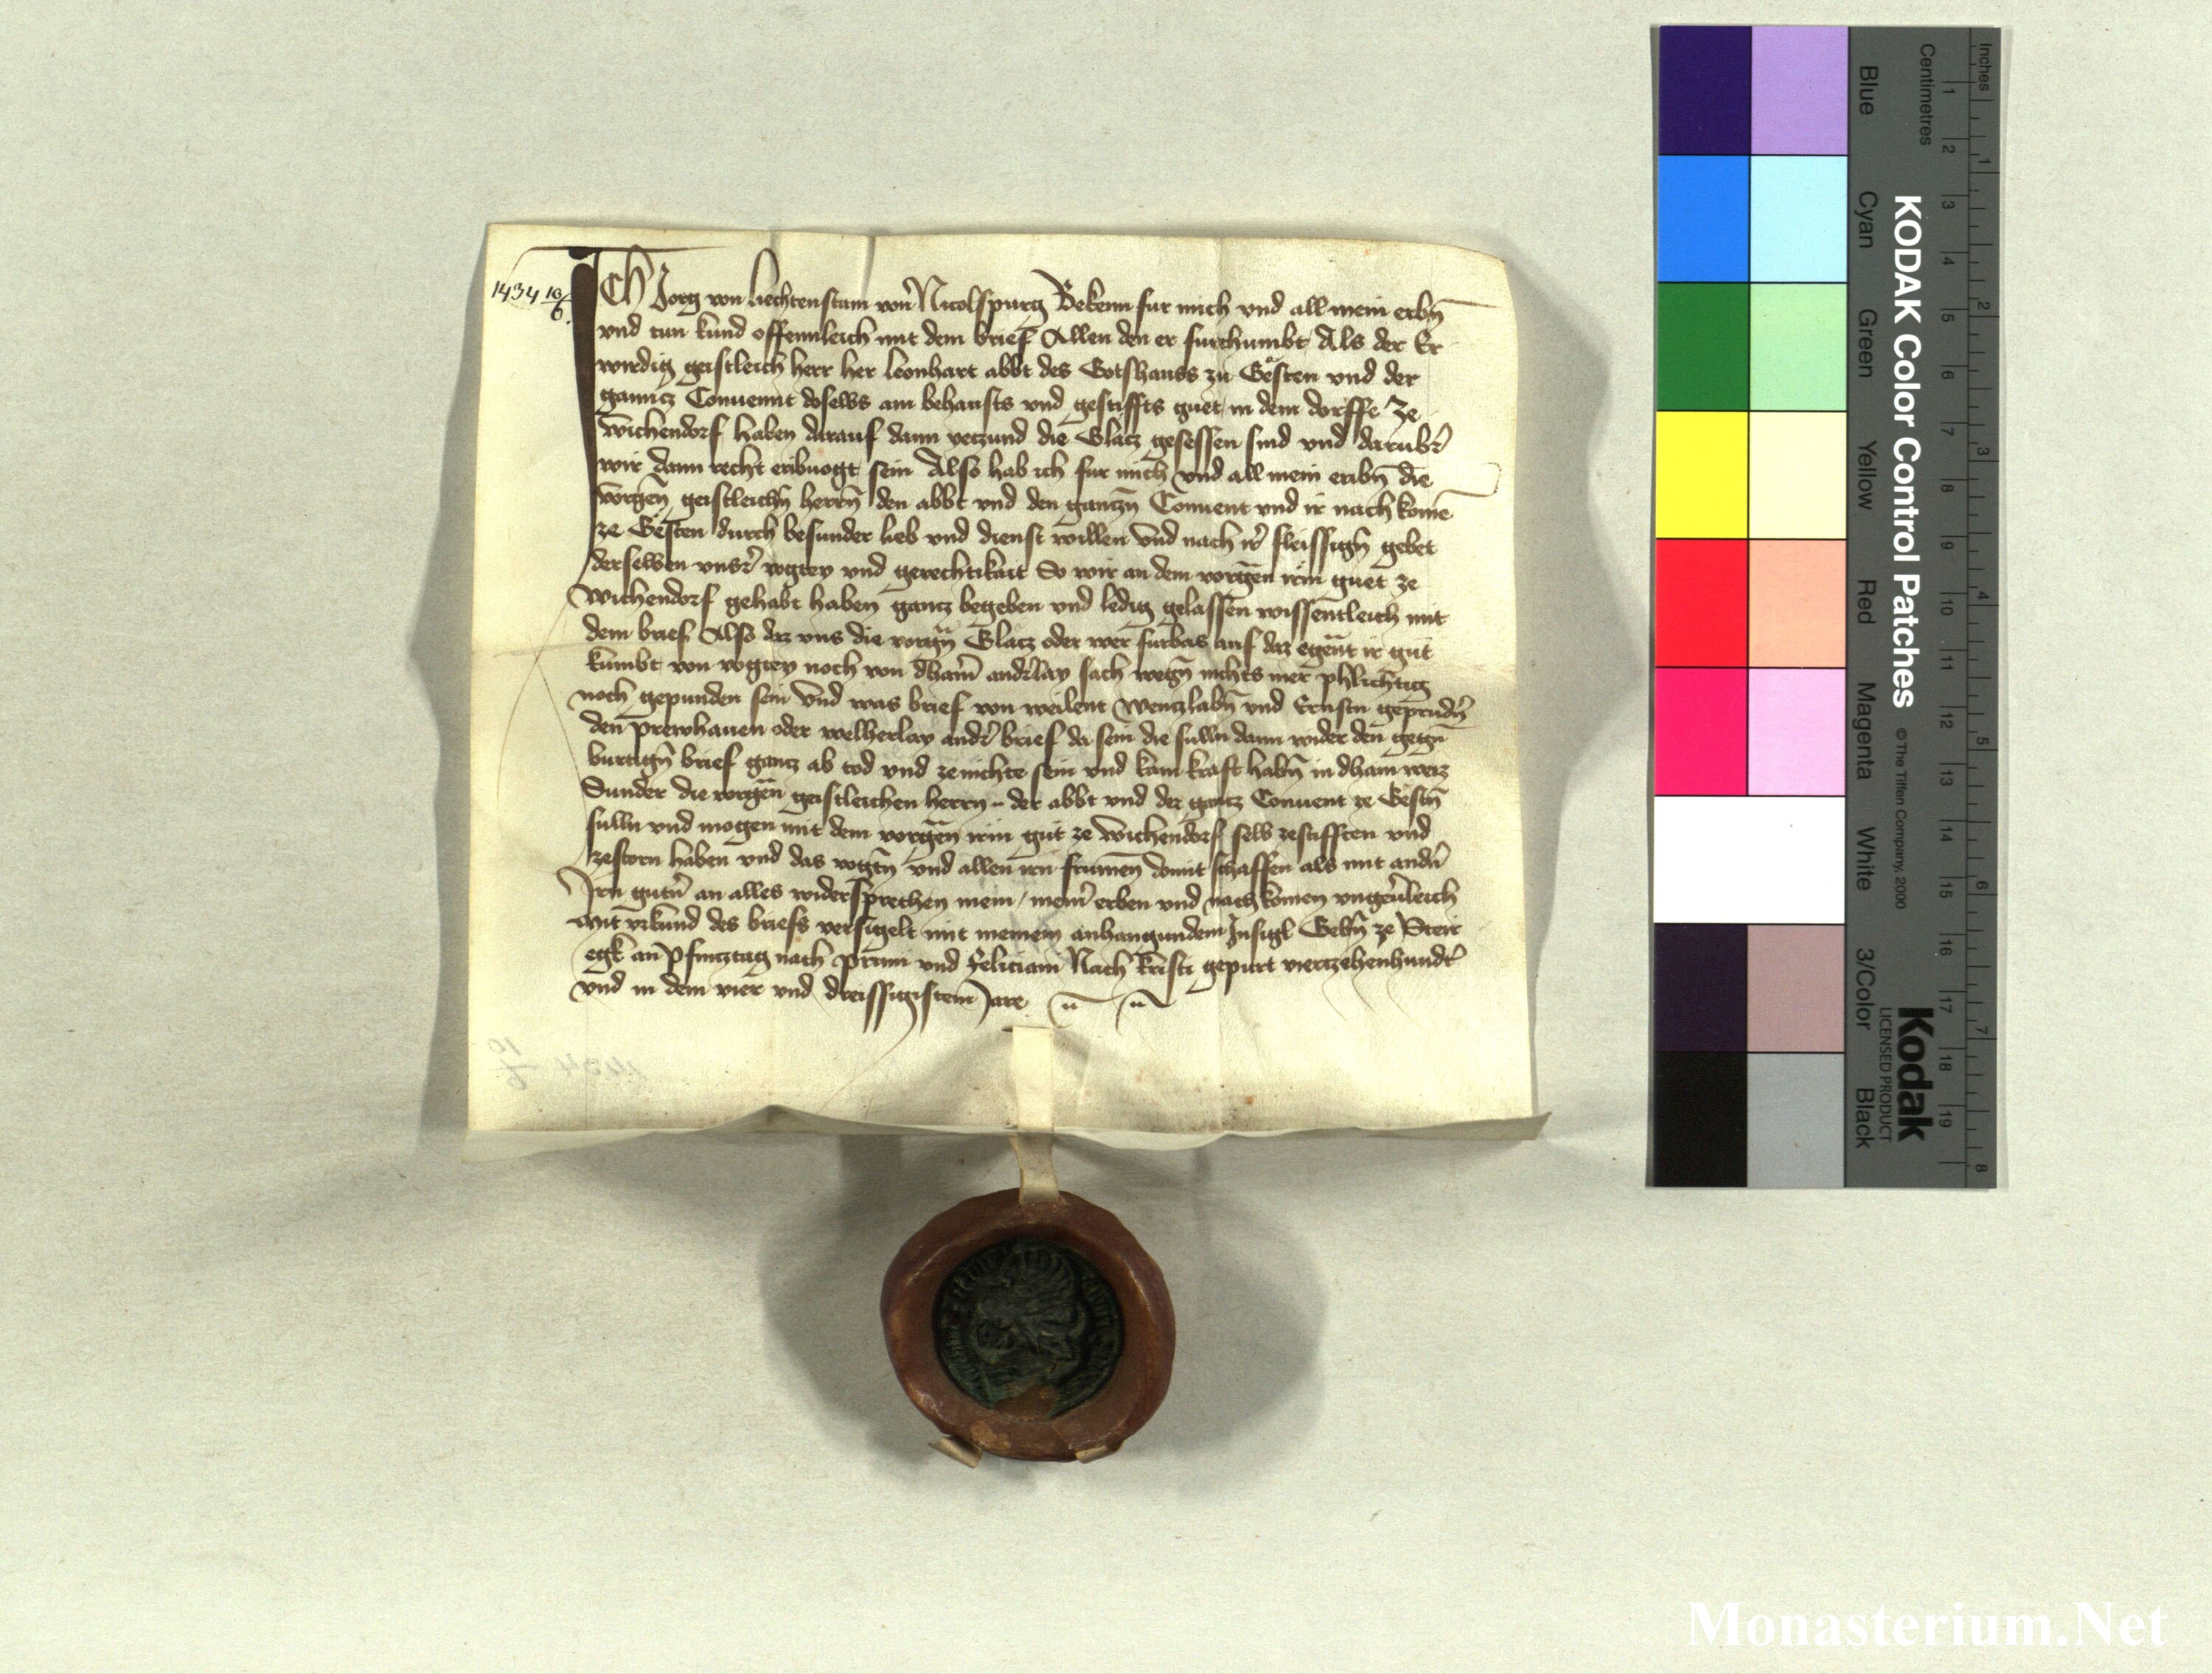 1434 10/6.
Ich Jorg von Liechtenstain von Nicolspurg Bekenn fur mich vnd all mein erbn̄
vnd tun kund offennleich mit dem brief Allen den er furchumbt Als der Er
wirdig geistleich herr her Leonhart abbt des Gotshauss zu Gësten vnd der
ganntz Conuennt doselbs ain behausts vnd gestiffts guet in dem dorffe ze
Wichendorf haben darauf dann yeczund die Glacz gesessen sind vnd darubr̄
wir dann recht eribuogt sein Also hab ich fur mich vnd all mein eribn̄ die
vorgen̄ geistleichn̄ herrn̄ den abbt vnd den gantzn̄ Conuent vnd ir nachkomē
ze Gësten durch besunder lieb vnd dienst willen vnd nach ir̄ fleissign̄ gebet
derselben vnsr̄ vogtey vnd gerechtikait So wir an dem vorgen̄ irm guet ze
Wichendorf gehabt haben gancz begeben vnd ledig gelassen wissentleich mit
dem brief Also daz vns die vorgn̄ Glacz oder wer furbas auf daz egen̄t ir gut
kumbt von vogtey noch von dhain̄ andr̄lay sach wegn̄ nichts mer phlichtig
noch gepunden sein vnd was brief von weilent Wenczlabn̄ und Ernstn geprudn̄
den Prewhauen oder welherlay andr̄ brief da sein die sulln dann wider den gegn̄
burtign̄ brief gancz ab tod vnd zenichte sein vnd kain kraft habn̄ in dhain weiz
Sunder die vorgen̄ geistleichen herrn der abbt vnd der gancz Conuent ze Gestn̄
sulln vnd mogen mit dem vorgen̄ irm gut ze Wichendorf selb zestifften vnd
zestorn haben vnd das vogtn̄ vnd allen irn frumen̄ domit schaffen als mit andn̄
Irn gutn̄ an alles widersprechen mein / mein̄ erben vnd nachkomen vngeu̇leich
Mit vrkund des briefs versigelt mit meinem anhangundem Insigl Gebn̄ ze Steir
egk an Pfincztag nach Primi vnd Feliciani Nach kristi gepurt vierzehenhundt̄
vnd in dem vier vnd dreissigistem Jare
Inches
Centimetres
1 2 3 4 5 6 7 8 9 10 11 12 13 14 15 16 17 18 19
1 2 3 4 5 6 7 8
KODAK Color Control Patches © The Tiffen Company, 2000
Kodak
LICENSED PRODUCT
Blue Cyan Green Yellow Red Magenta White 3/Color Black
Monasterium.Net